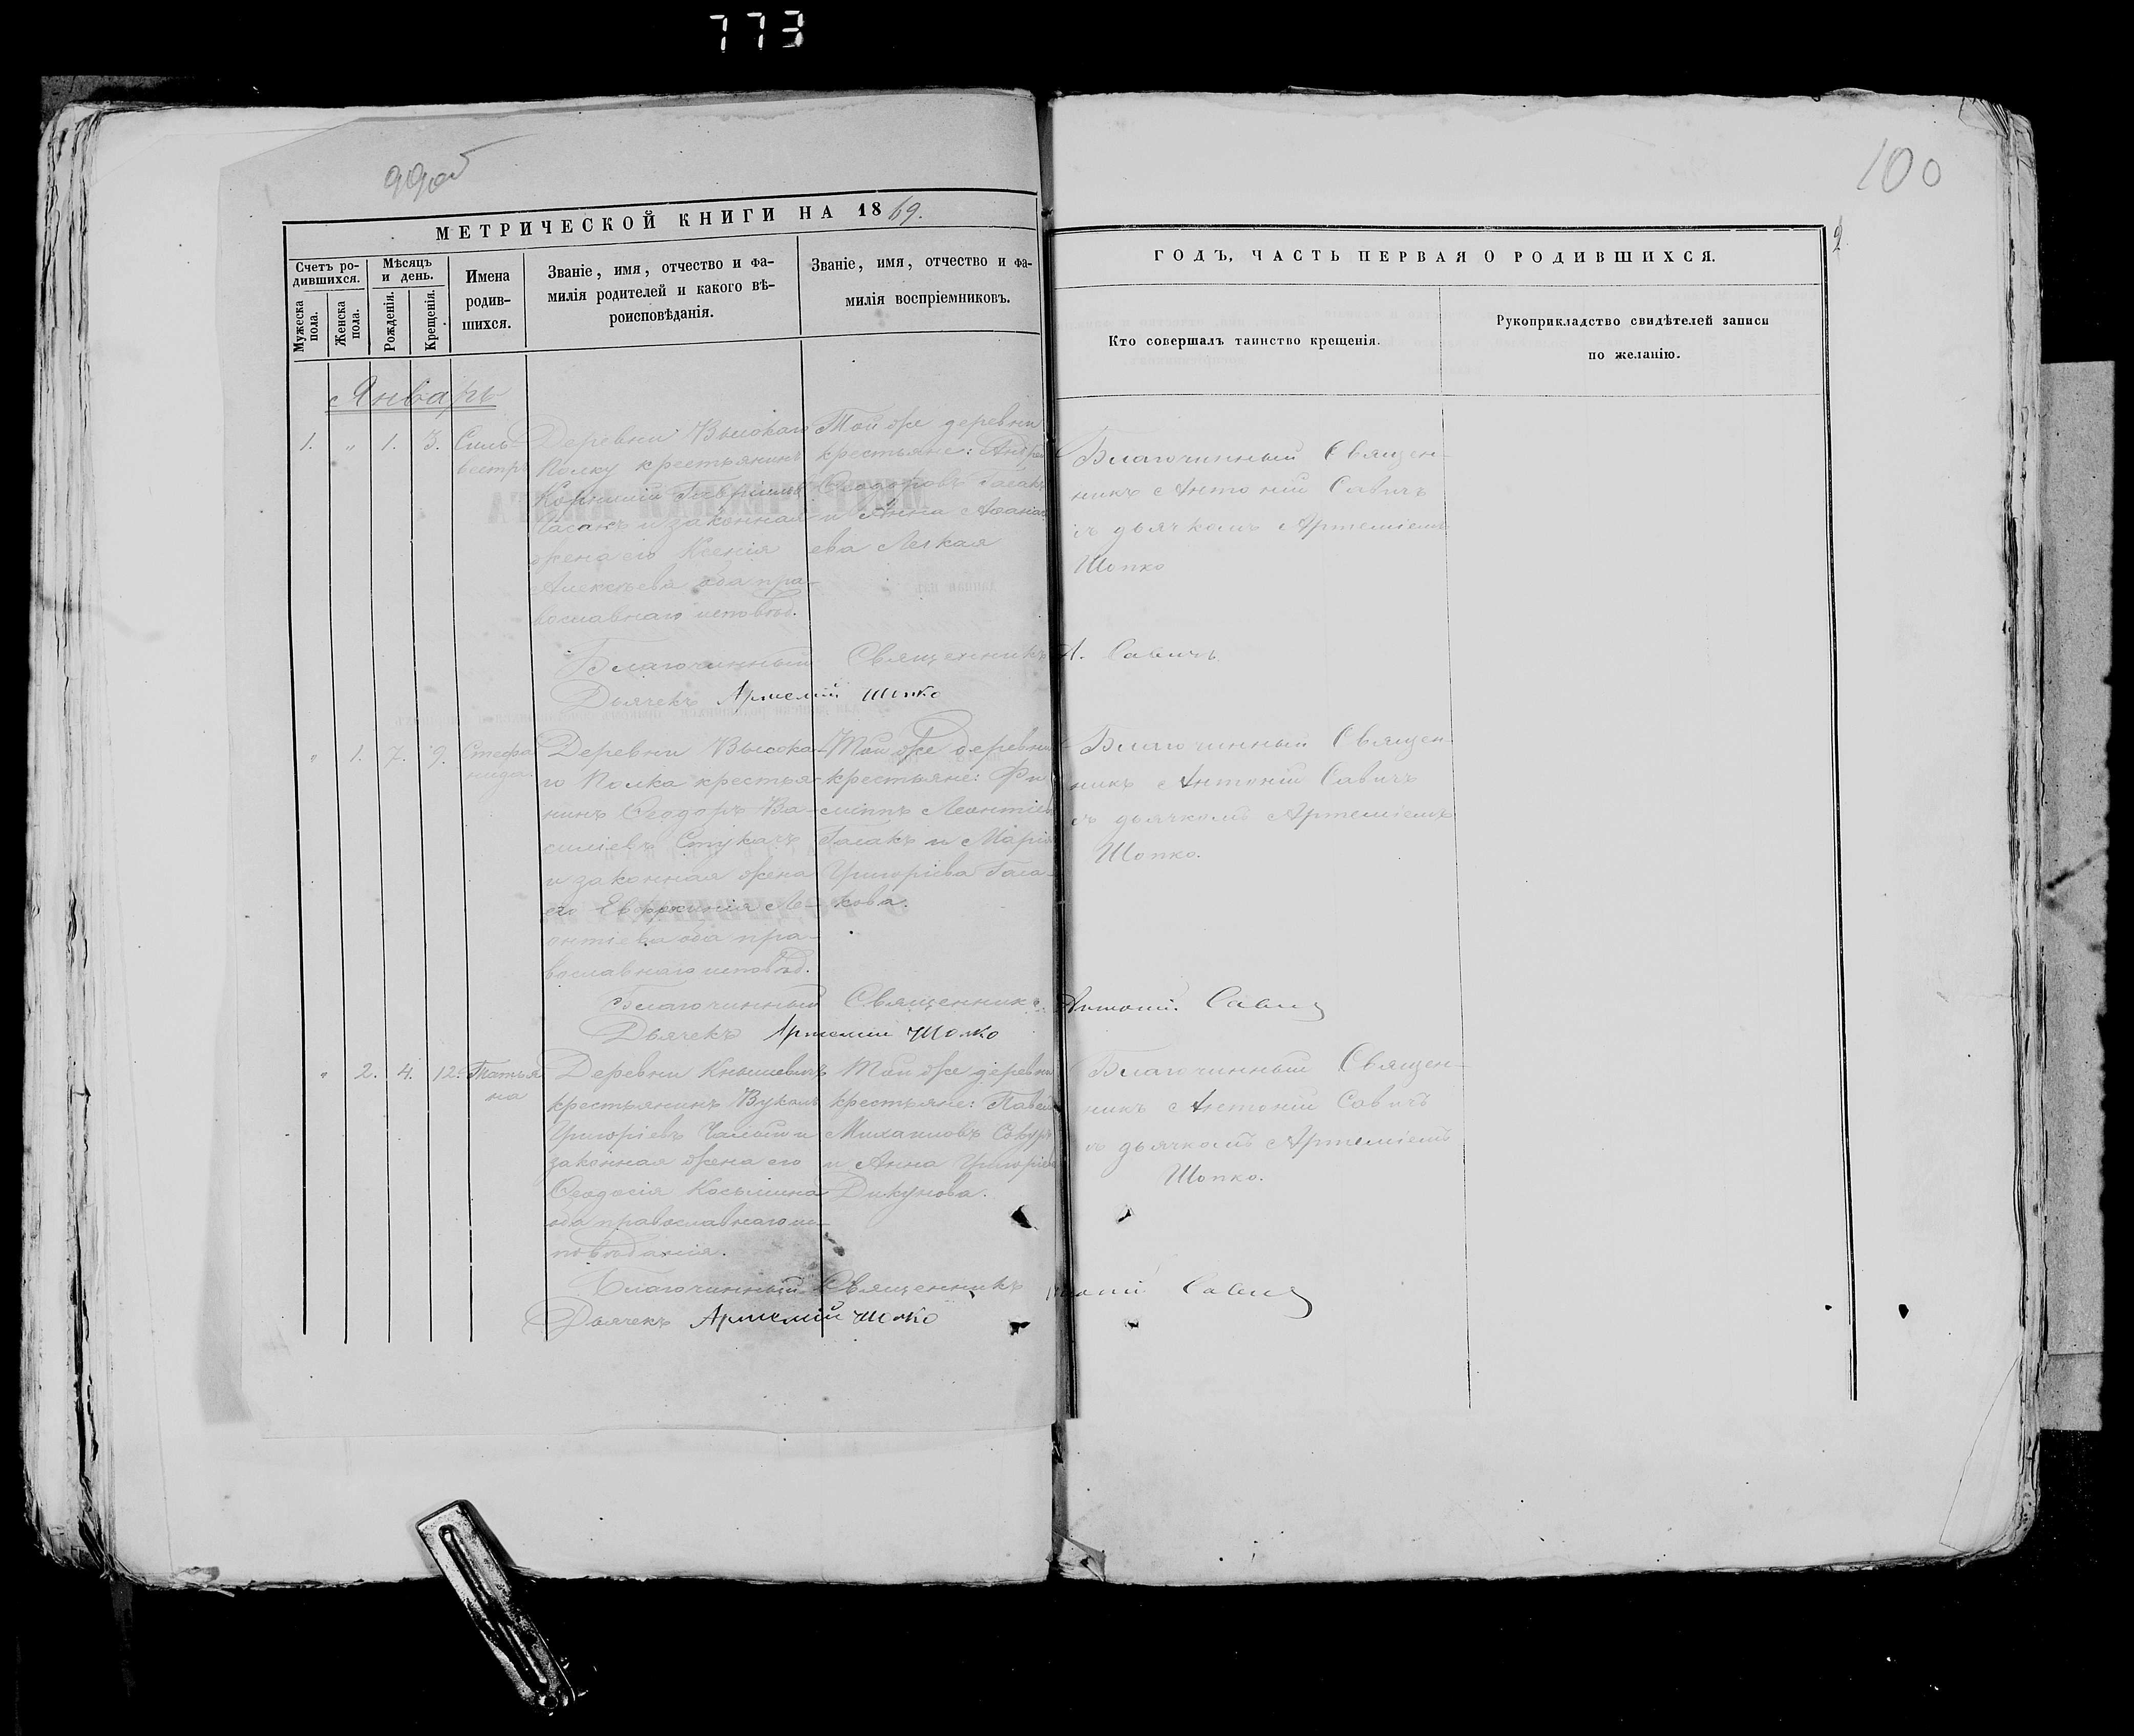 773
99об
100
2
МЕТРИЧЕСКОЙ КНИГИ НА 1869.
Счетъ родившихся.
Мужеска пола.
Женска пола.
Мѣсяцъ и день.
Рожденія.
Крещенія.
Имена родившихся.
Званіе, имя, отчество и фа-
милія родителей и какого вѣ-
роисповѣданія.
Званіе, имя, отчество и фа-
милія воспріемниковъ.
ГОДЪ, ЧАСТЬ ПЕРВАЯ О РОДИВШИХСЯ.
Кто совершалъ таинство крещенія.
Рукоприкладство свидѣтелей записи
по желанію.
Январь
1. " 1. 3.
Силь-
вестръ
Деревни Высокаго
Полку крестьянинъ
Корнилій Гавріиловъ
и законная
жена его Ксенія
Алексѣева оба пра-
вославнаго исповѣд.
Той же деревни
крестьяне: Андрей
Ѳеодоровъ Галакъ
и Анна Аѳанась
ева Легкая
Благочинный Священ-
никъ Антоній Савичъ
съ дьячкомъ Артеміемъ
Шопко
Благочинный Священникъ А. Савичъ
Дьячекъ Артемій Шопко
" 1. 7. 9.
Стефа
нида.
Деревни Высока-
го Полка крестья-
нинъ Ѳеодоръ Ва-
силіевъ Стукачъ
и законная жена
его Евфросинія Ле-
онтіева оба пра-
вославнаго исповѣд.
Той же деревни
крестьяне: Фи
липпъ Леонтіев
Галакъ и Марія
Григоріева Гала-
кова.
Благочинный Священ-
никъ Антоній Савичъ
съ дьячкомъ Артеміемъ
Шопко.
Благочинный Священникъ Антоній Савичъ
Дьячекъ Артемій Шопко
" 2. 4. 12.
Татья
на
Деревни Кнышевичъ
крестьянинъ Вукалъ
Григоріевъ и
законная жена его
Ѳеодосія Косьмина
оба православнаго ис-
повѣданія.
Той же деревни
крестьяне: Павелъ
Михаиловъ
и Анна Григоріев
Дикунова.
Благочинный Священ-
никъ Антоній Савичъ
съ дьячкомъ Артеміемъ
Шопко.
Благочинный Священникъ Антоній Савичъ
Дьячекъ Артемій Шопко